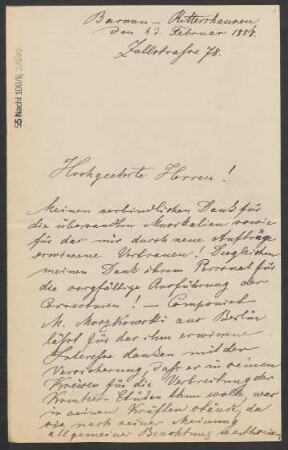 Barmen – Rittershausen
den 23. Februar 1884.
Zollstrasse 78.
55 Nachl 100/B,
Hochgeehrte Herren!
Meinen verbindlichen Dank für
die übersandten Musikalien sowie
für das mir durch neue Aufträge
erwiesene Vertrauen! Desgleichen
meinen Dank Ihrem Personal für
die sorgfältige Ausführung der
Correcturen! – Componist
M. Moszkowski aus Berlin
läßt für das ihm erwiesene
Interesse danken mit der
Versicherung, daß er in seinen
Kreisen für die Verbreitung der
Kreutzer Etüden thun wolle, was
in seinen Kräften stände, da
sie nach seiner Meinung
allgemeiner Beachtung werth seien